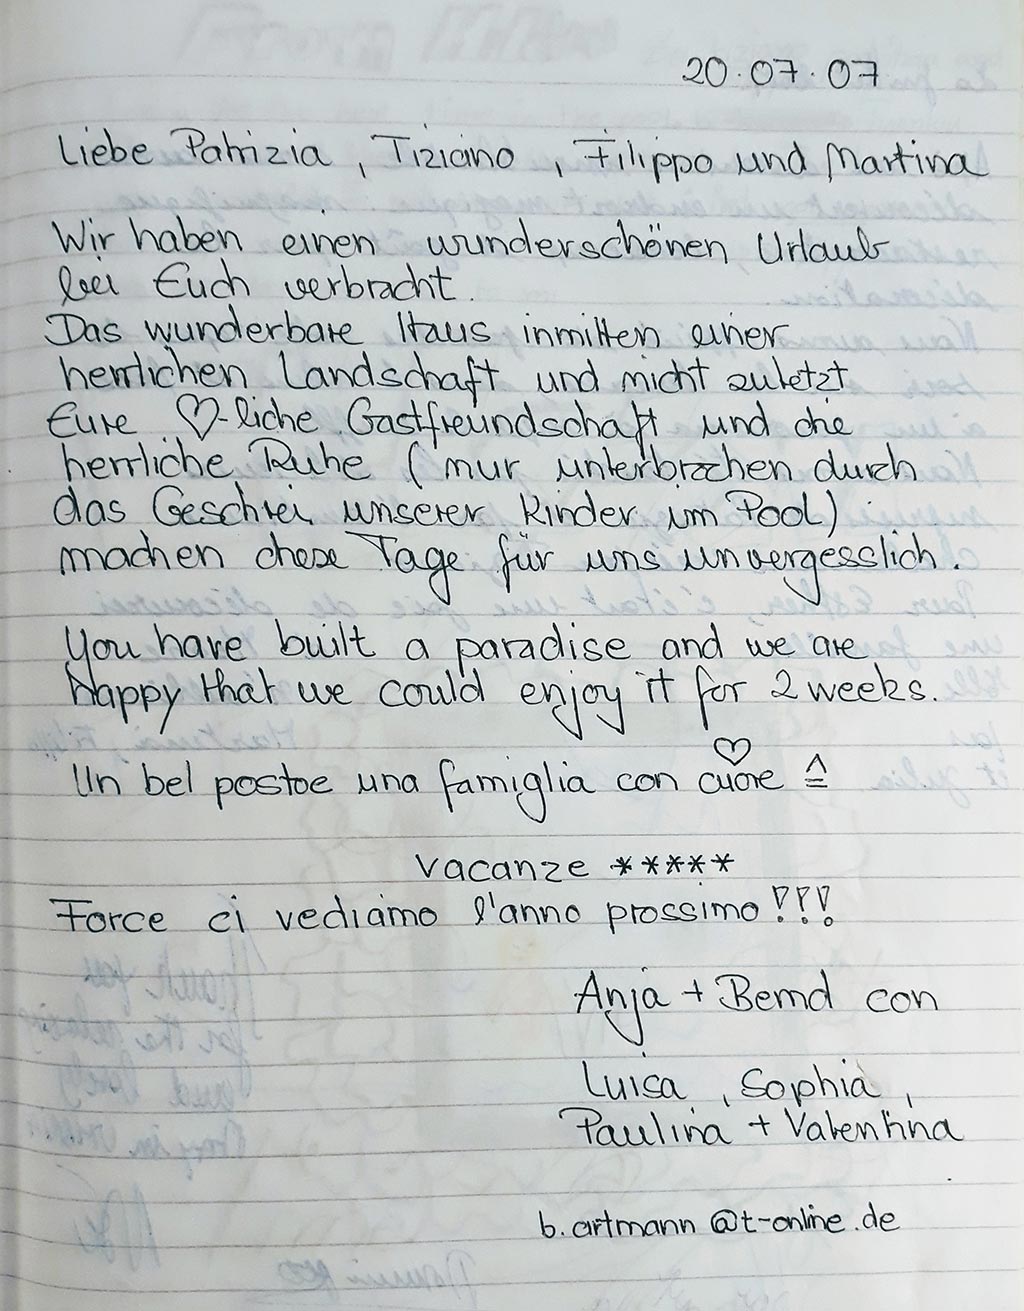 20.07.07
Liebe Patrizia, Tiziano, Filippo und Martina
Wir haben einen wunderschönen Urlaub
bei Euch verbracht.
Das wunderbare Haus inmitten einer
herrlichen Landschaft und nicht zuletzt
Eure ♡-liche Gastfreundschaft und die
herrliche Ruhe (nur unterbrochen durch
das Geschrei unserer Kinder im Pool)
machen diese Tage für uns unvergesslich.
You have built a paradise and we are
happy that we could enjoy it for 2 weeks.
Un bel postoe una famiglia con cuore ≙
♡
Vacanze *****
Force ci vediamo l'anno prossimo!!!
Anja + Bernd con
Luisa, Sophia,
Paulina + Valentina
b.artmann@t-online.de